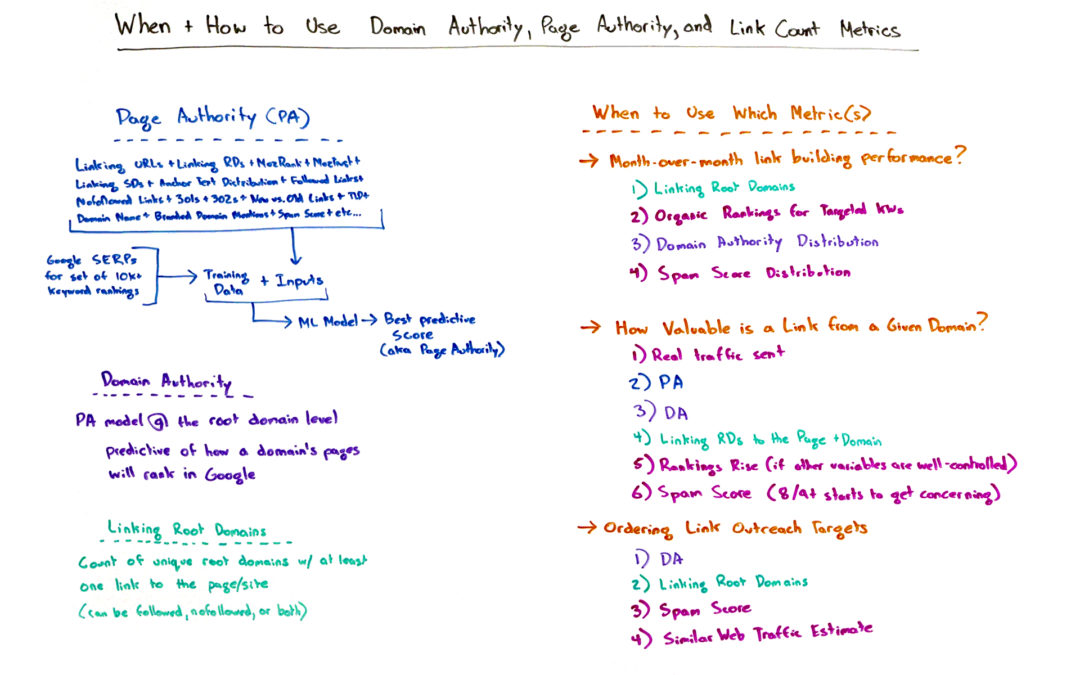 When + How to Use Domain Authority, Page Authority, and Link Count Metrics
Page Authority (PA)
Linking URLs + Linking RDs + MozRank + MozTrust +
Linking SDs + Anchor Text Distribution + Followed Links +
Nofollowed Links + 301s + 302s + New vs. Old Links + TLD +
Domain Name + Branded Domain Mentions + Spam Score + etc...
Google SERPs
for set of 10K+
keyword rankings
Training
Data
+ Inputs
ML Model → Best predictive
Score
(aka Page Authority)
Domain Authority
PA model @ the root domain level
predictive of how a domain's pages
will rank in Google
Linking Root Domains
Count of unique root domains w/ at least
one link to the page/site
(can be followed, nofollowed, or both)
When to Use Which Metric(s)
→ Month-over-month link building performance?
1) Linking Root Domains
2) Organic Rankings for Targeted KWs
3) Domain Authority Distribution
4) Spam Score Distribution
→ How Valuable is a Link from a Given Domain?
1) Real traffic sent
2) PA
3) DA
4) Linking RDs to the Page + Domain
5) Rankings Rise (if other variables are well-controlled)
6) Spam Score (8/9+ starts to get concerning)
→ Ordering Link Outreach Targets
1) DA
2) Linking Root Domains
3) Spam Score
4) Similar Web Traffic Estimate